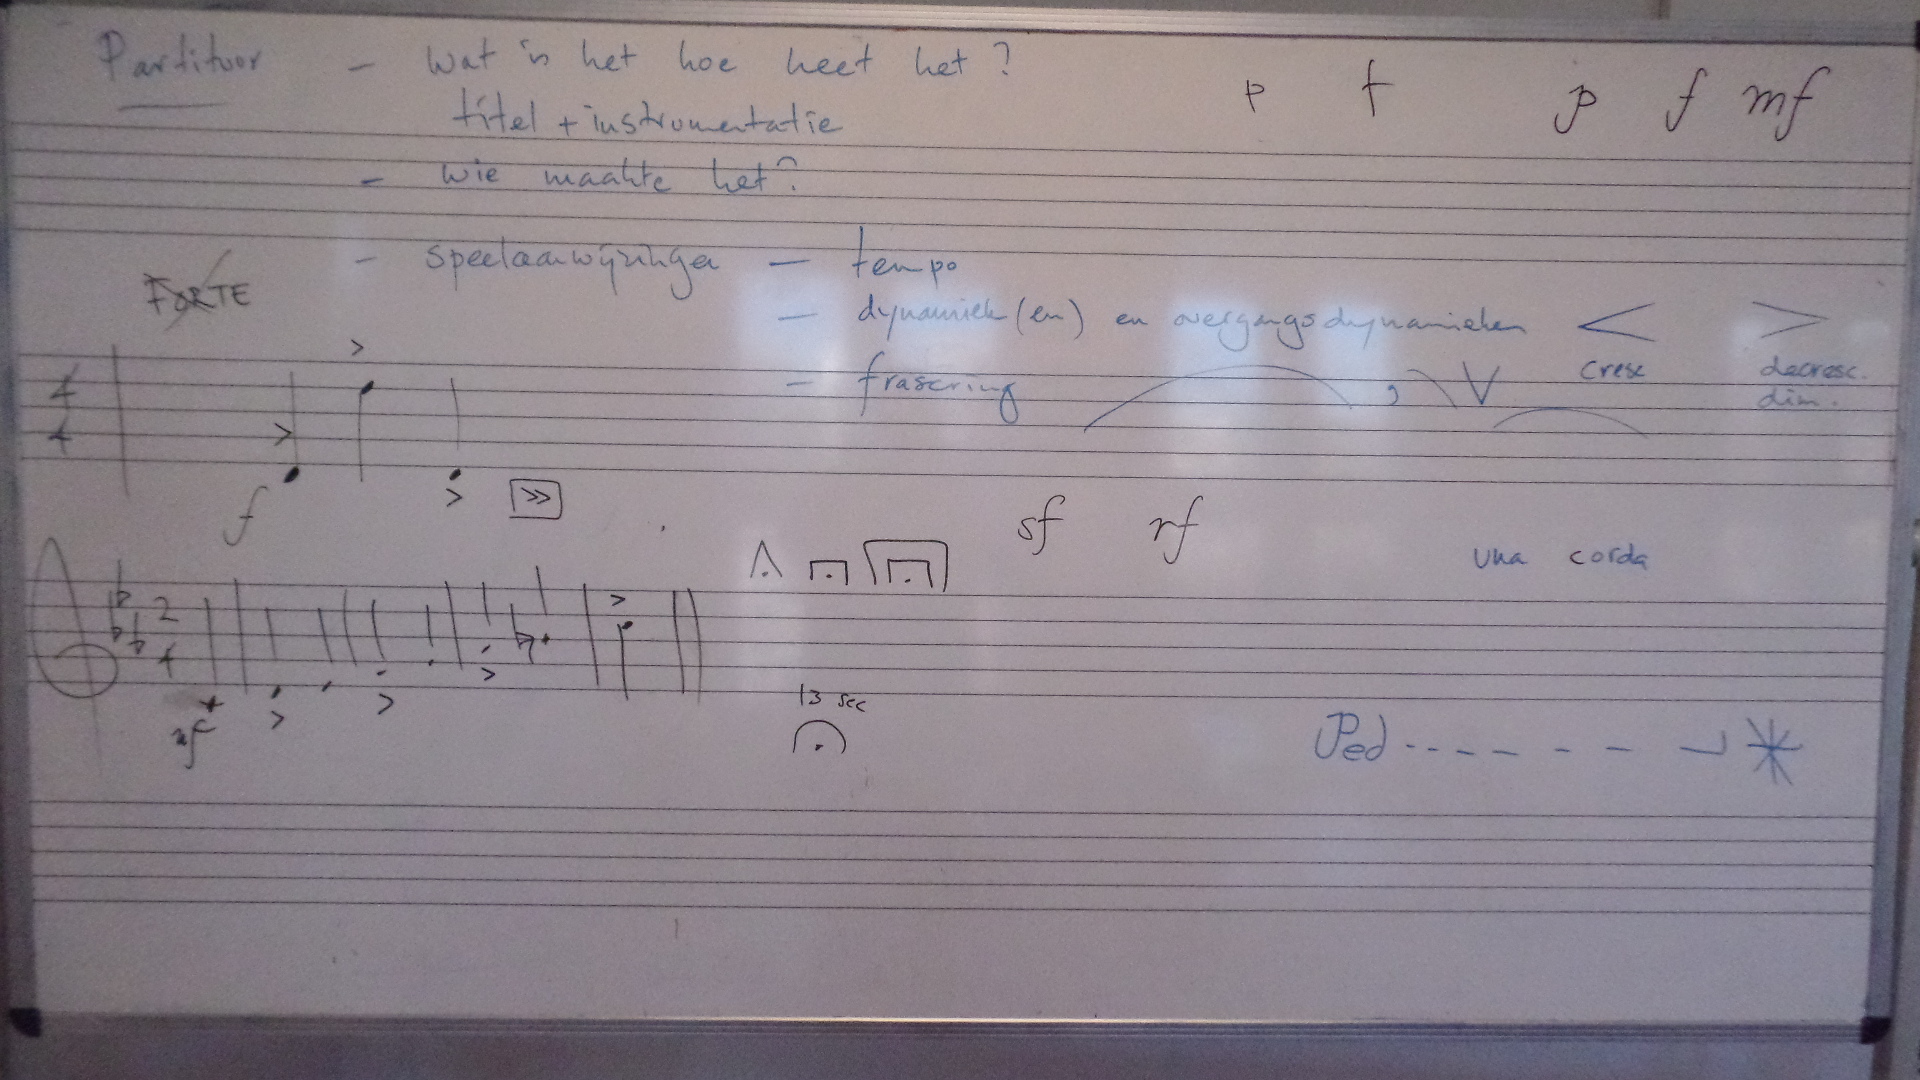 Partituur - wat is het hoe heet het?
titel + instrumentatie
p f p f mf
- wie maakte het?
- speelaanwijzingen - tempo
FORTE
- dynamiek (en) en overgangsdynamieken < >
cresc decresc.
dim.
- frasering , V
4
4
> > >
f
>>
sf rf
una corda
2
4
mf
> > > >
13 sec
Ped